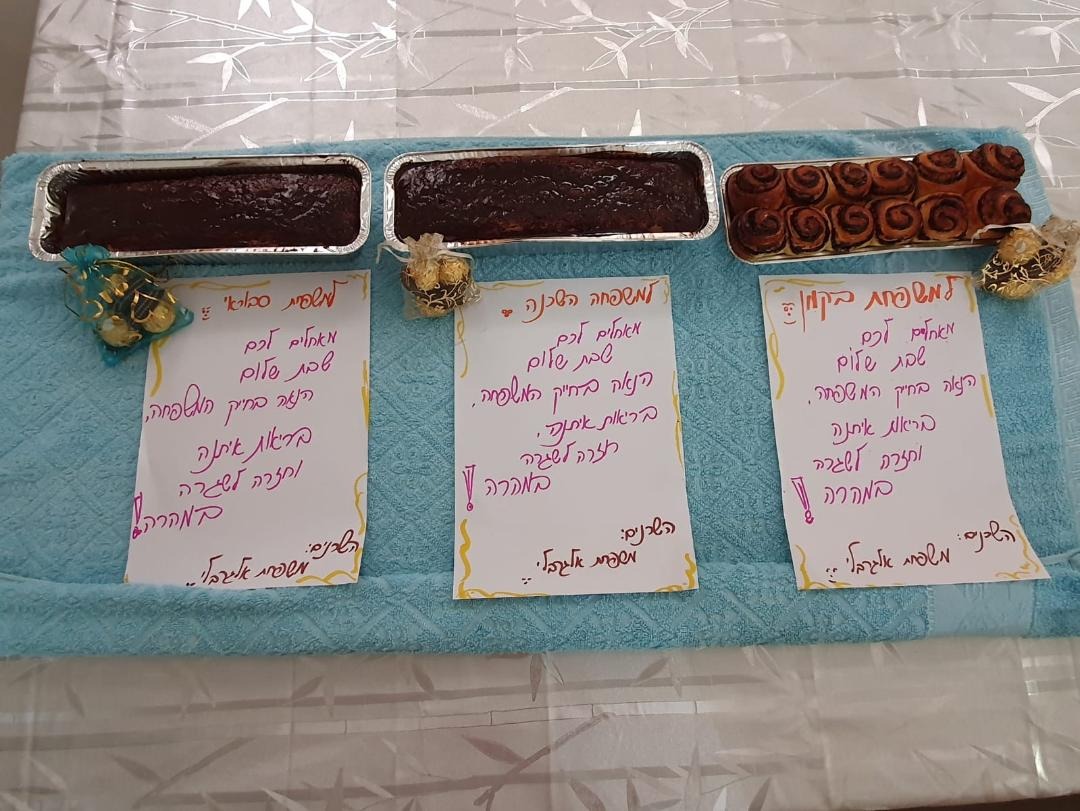 למשפחת בקמן
מאחלים לכם
שבת שלום
הנאה בחיק המשפחה,
בריאות איתנה
וחזרה לשגרה
במהרה!
השכנים:
משפחת אלגרבלי
למשפחה השכנה
מאחלים לכם
שבת שלום
הנאה בחיק המשפחה,
בריאות איתנה,
חזרה לשגרה
במהרה!
השכנים:
משפחת אלגרבלי
למשפחת סבוראי
מאחלים לכם
שבת שלום
הנאה בחיק המשפחה,
בריאות איתנה
וחזרה לשגרה
במהרה!
השכנים:
משפחת אלגרבלי